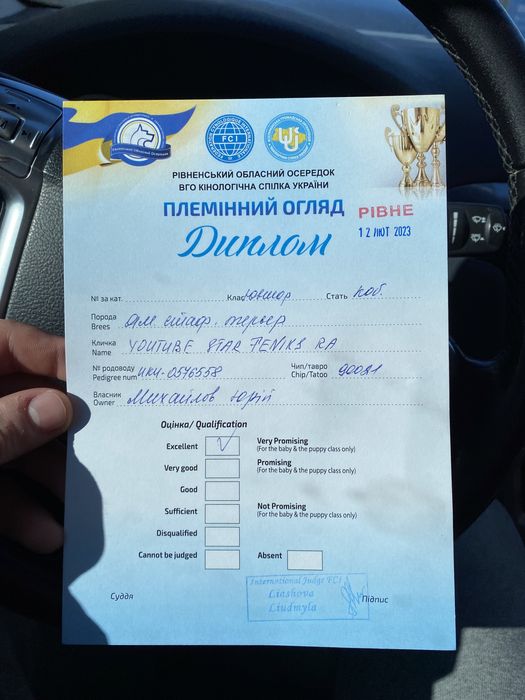 Рівненський Обласний Осередок
FCI
РІВНЕНСЬКИЙ ОБЛАСНИЙ ОСЕРЕДОК
ВГО КІНОЛОГІЧНА СПІЛКА УКРАЇНИ
ПЛЕМІННИЙ ОГЛЯД РІВНЕ
Диплом 12 ЛЮТ 2023
№ за кат. Клас Юніор Стать Коб.
Порода Ам. стаф. терьер
Brees
Кличка YOUTUBE STAR FENIKS RA
Name
№ родоводу UKU-0546558 Чип/тавро 90021
Pedigree num Chip/Tatoo
Власник Михайлов Юрій
Owner
Оцінка/ Qualification
Excellent Very Promising
(For the baby & the puppy class only)
Very good Promising
(For the baby & the puppy class only)
Good
Sufficient Not Promising
(For the baby & the puppy class only)
Disqualified
Cannot be judged Absent
International Judge FCI
Суддя Liashova Підпис
Liudmyla